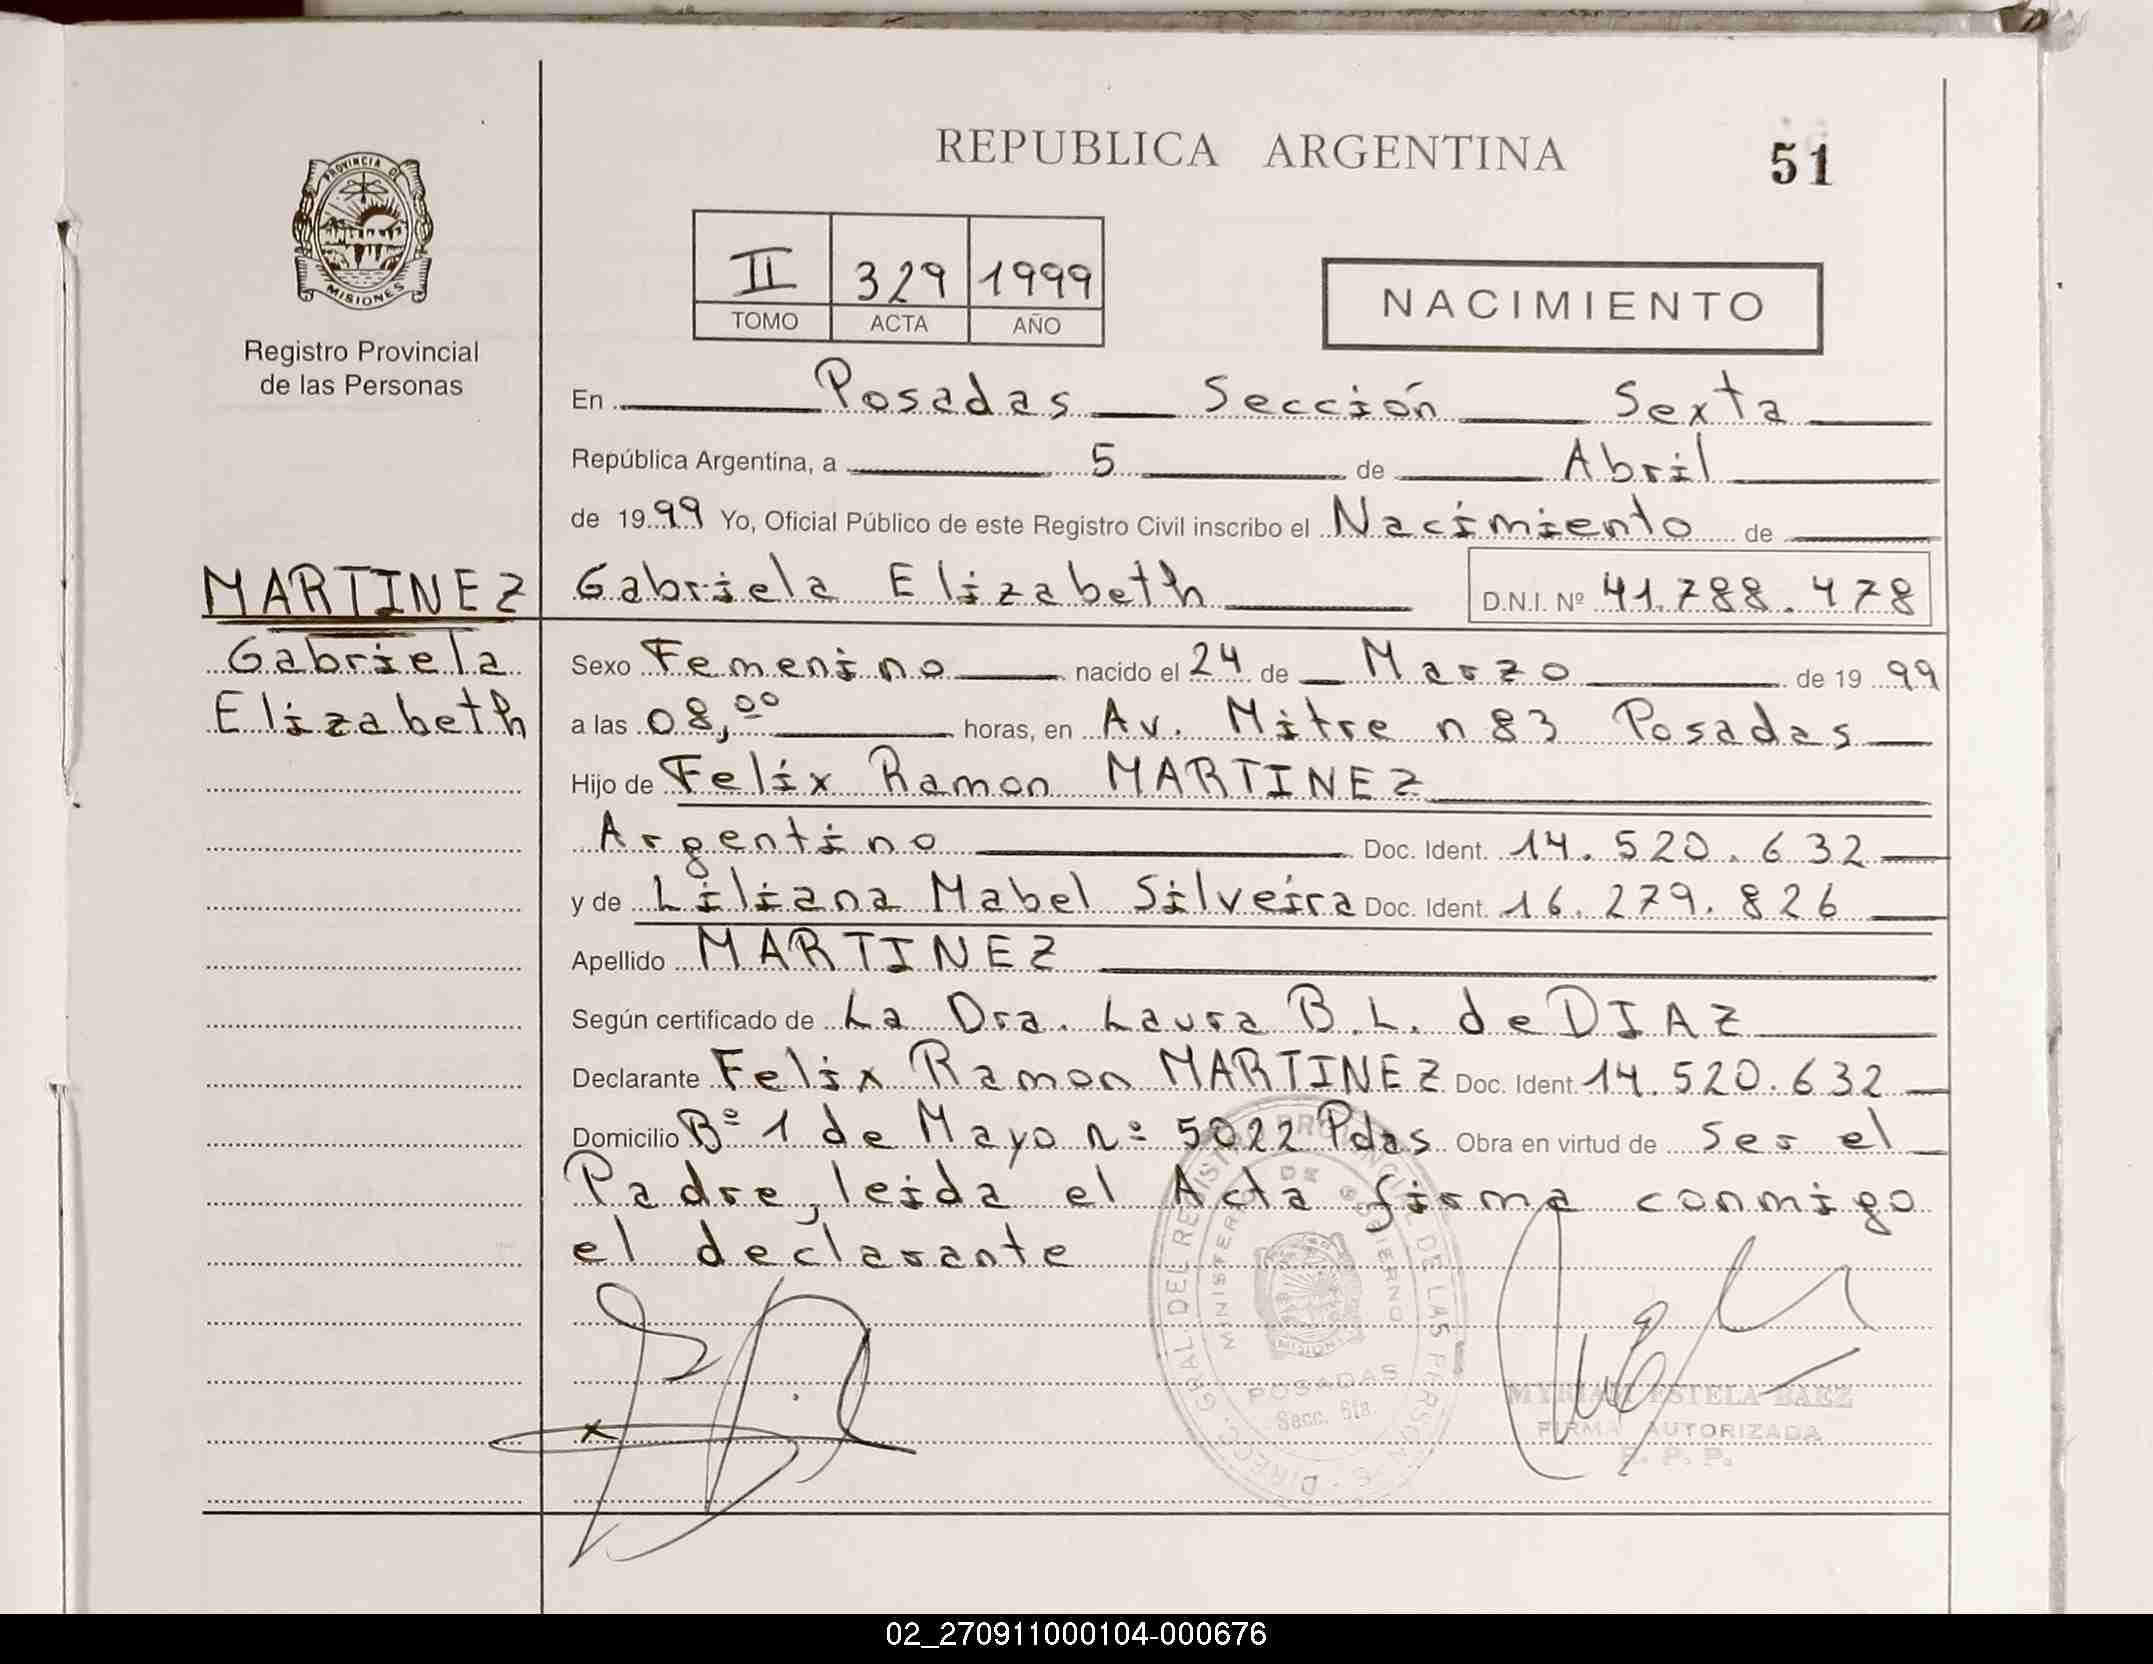 REPUBLICA ARGENTINA
51
PROVINCIA DE
MISIONES
Registro Provincial
de las Personas
II 329 1999
TOMO ACTA AÑO
NACIMIENTO
En Posadas Sección Sexta
República Argentina, a 5 de Abril
de 1999 Yo, Oficial Público de este Registro Civil inscribo el Nacimiento de
MARTINEZ
Gabriela
Elizabeth
Gabriela Elizabeth D.N.I. Nº 41.788.478
Sexo Femenino nacido el 24 de Marzo de 1999
a las 08,00 horas, en Av. Mitre n 83 Posadas
Hijo de Felix Ramon MARTINEZ
Argentino Doc. Ident. 14.520.632
y de Liliana Mabel Silveira Doc. Ident. 16.279.826
Apellido MARTINEZ
Según certificado de La Dra. Laura B.L. de DIAZ
Declarante Felix Ramon MARTINEZ Doc. Ident. 14.520.632
Domicilio Bº 1 de Mayo nº 5022 Pdas. Obra en virtud de ser el
Padre, leida el Acta firma conmigo
el declarante
DIRECC. GRAL. DEL REGISTRO PROVINCIAL DE LAS PERSONAS
MINISTERIO DE GOBIERNO
MISIONES
POSADAS
Secc. 6ta.
x
MYRIAM ESTELA BAEZ
FIRMA AUTORIZADA
R. P. P.
02_270911000104-000676